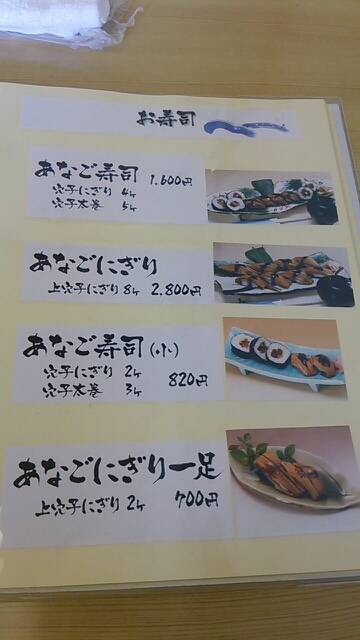 お寿司
あなご寿司 1.600円
穴子にぎり 4ヶ
穴子太巻 5ヶ
あなごにぎり
上穴子にぎり 8ヶ 2.800円
あなご寿司(小)
穴子にぎり 2ヶ
穴子太巻 3ヶ 820円
あなごにぎり一足
上穴子にぎり 2ヶ 700円